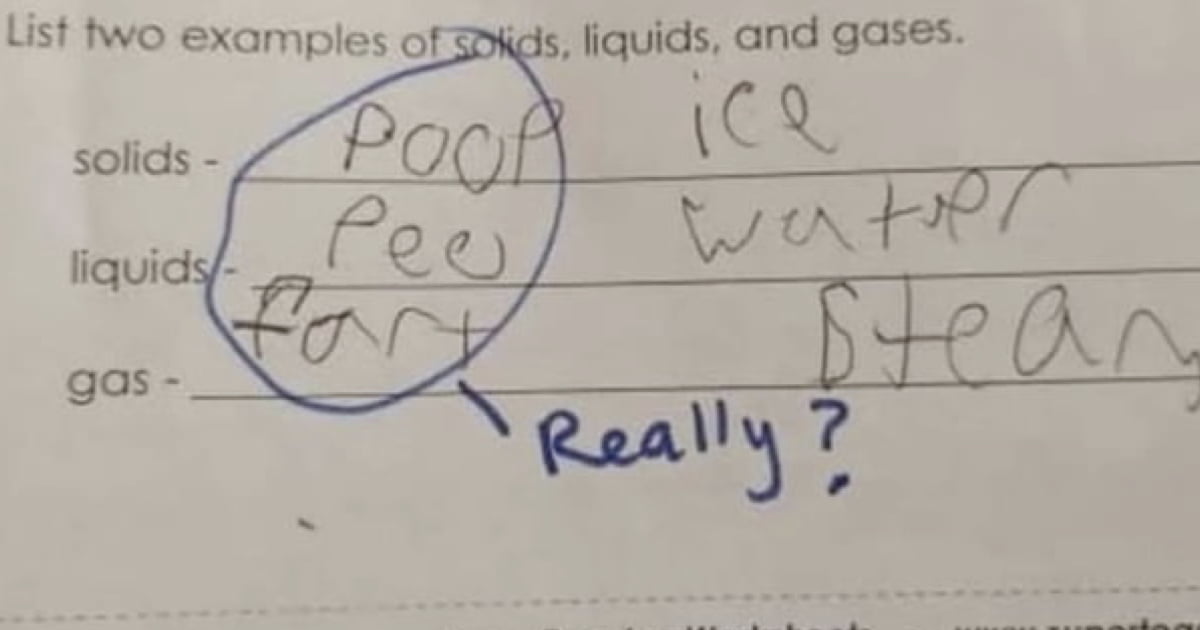 List two examples of solids, liquids, and gases.
solids - Poop ice
liquids - Pee water
gas - fart steam
Really?